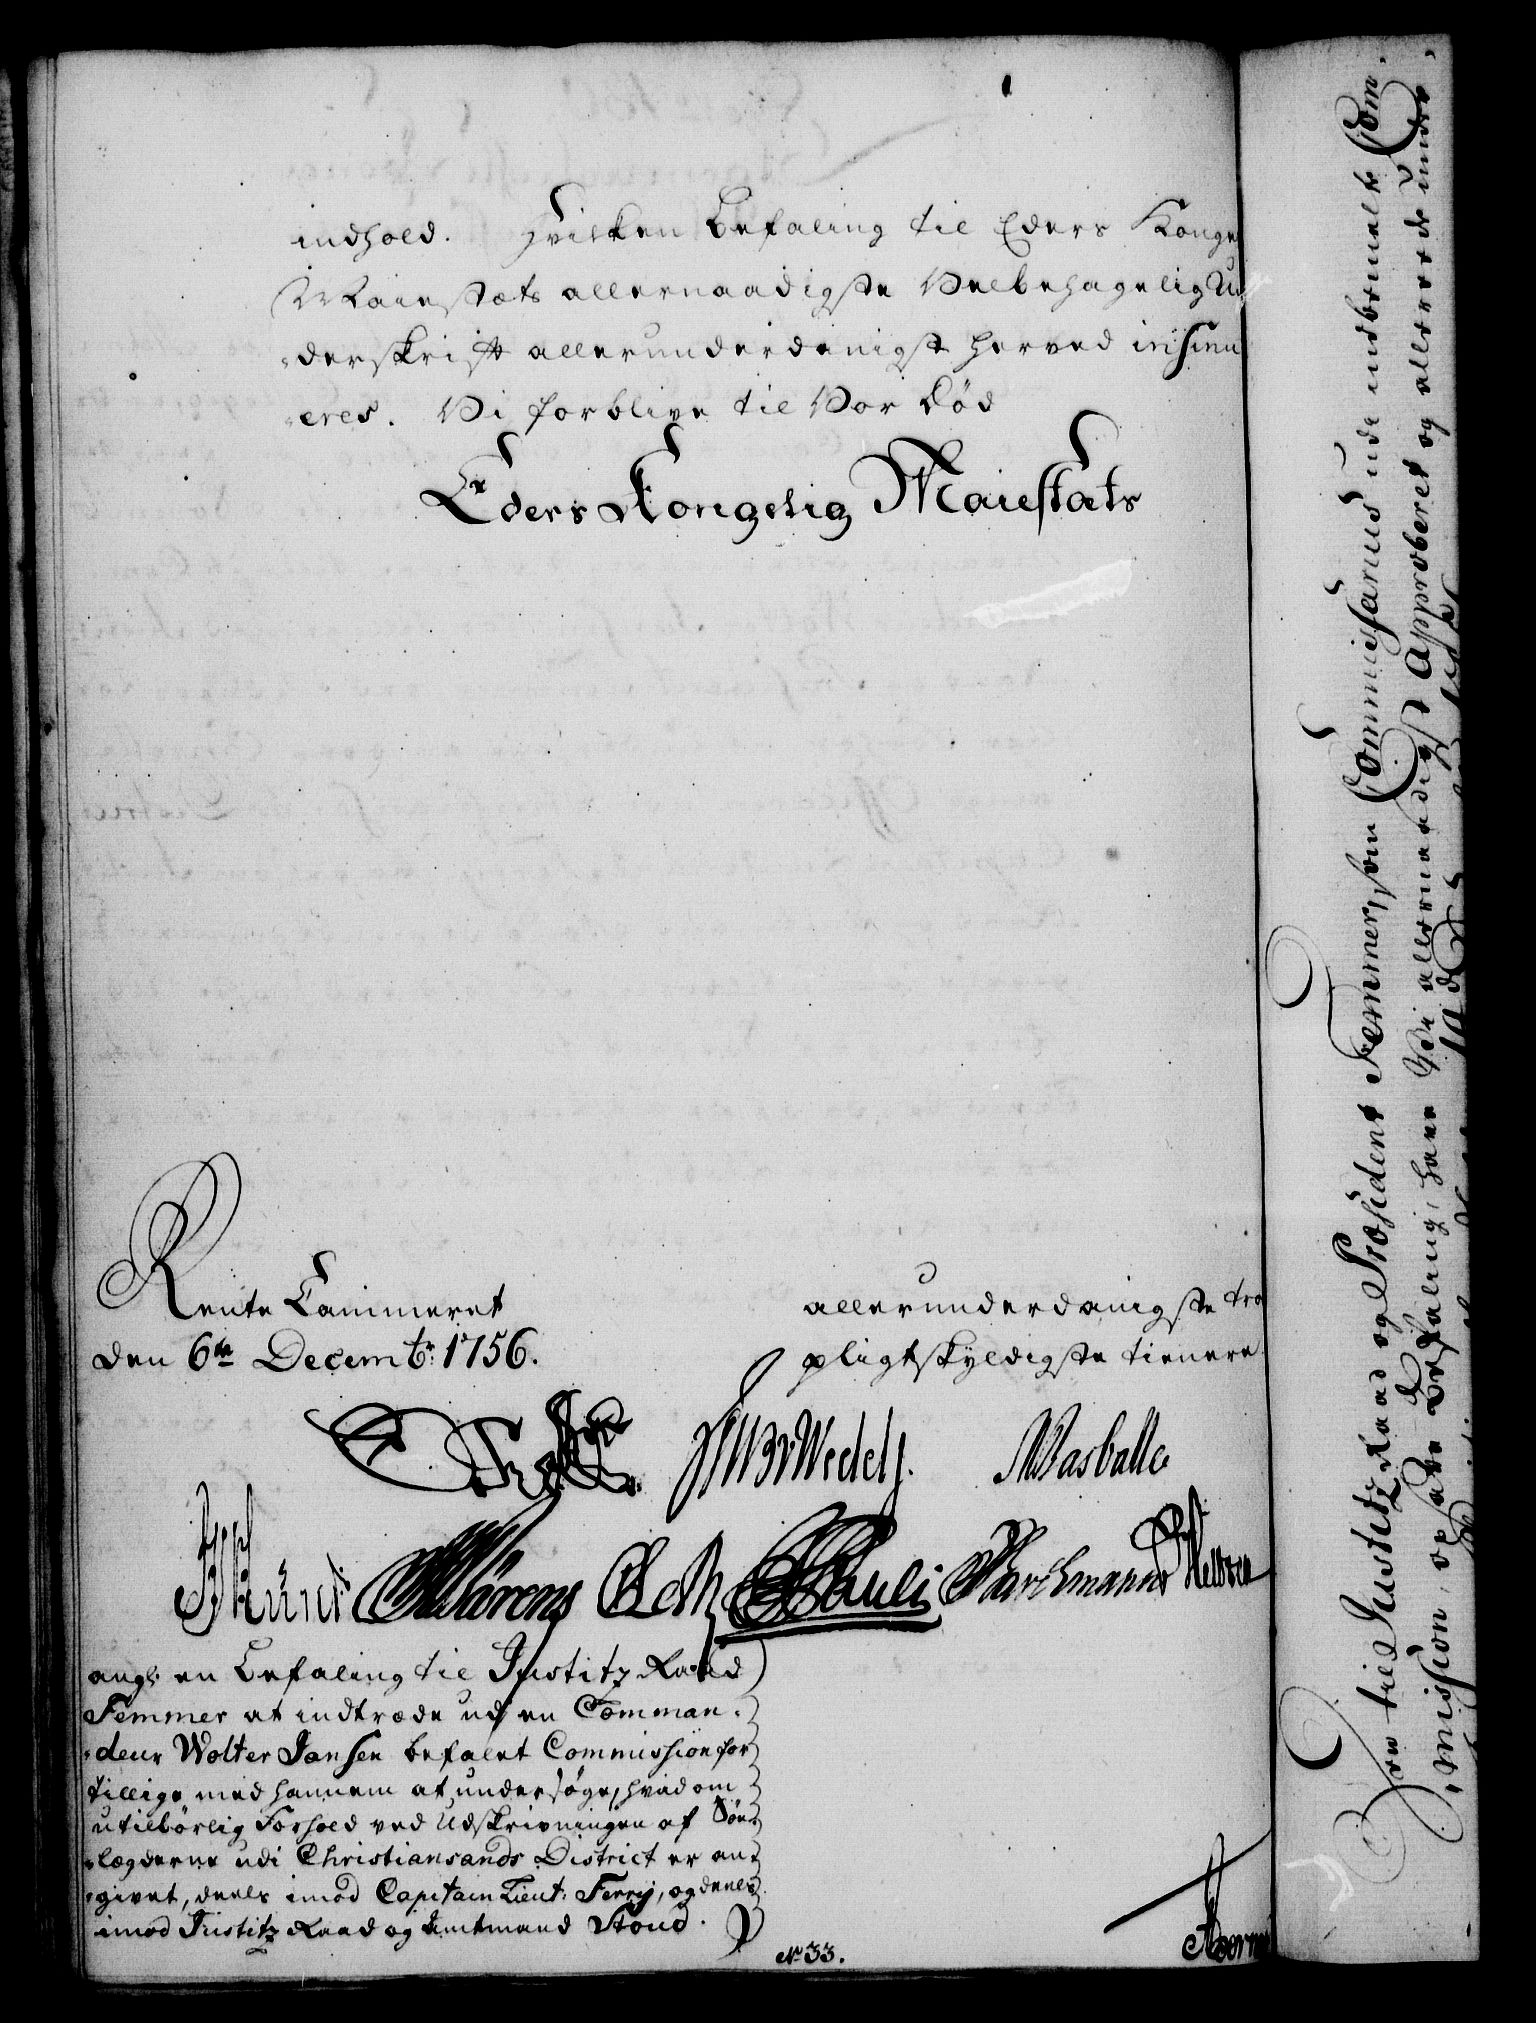 indhold. Hvilken Befaling til Eders Konge
Maiestæts allernaadigste Velbehagelig Un
-derskrift allerunderdanigst herved insinu
-eres. Vi forblive til Vor Död
Eders Kongelig Maiestæts
Rente Cammeret
den 6te Decembr: 1756.
allerunderdanigste tro
pligtskyldigste tienere
Wedelj.
JMasballe
Künd Mörens Pauli
angl: en Befaling til Justitz Raad
Femmer at indtræde udj en Comman-
-deur Wolter Jansen befalet Commission for
tillige med hannem at undersöge, hvad om
utilbörlig Forhold ved Udskrivningen af Söe-
-lægderne udi Christiansands District er an-
-givet, deels imod Capitain Lieut: Ferrij, og deels
imod Justitz Raad og Amtmand Stoud.
No 33.
til Justitz Raad og Præsident Femmer, som Commissarius udi indbemelte Com-
-mission, opsatte Befaling, have Vi allernaadigst Approberet og allerede under-